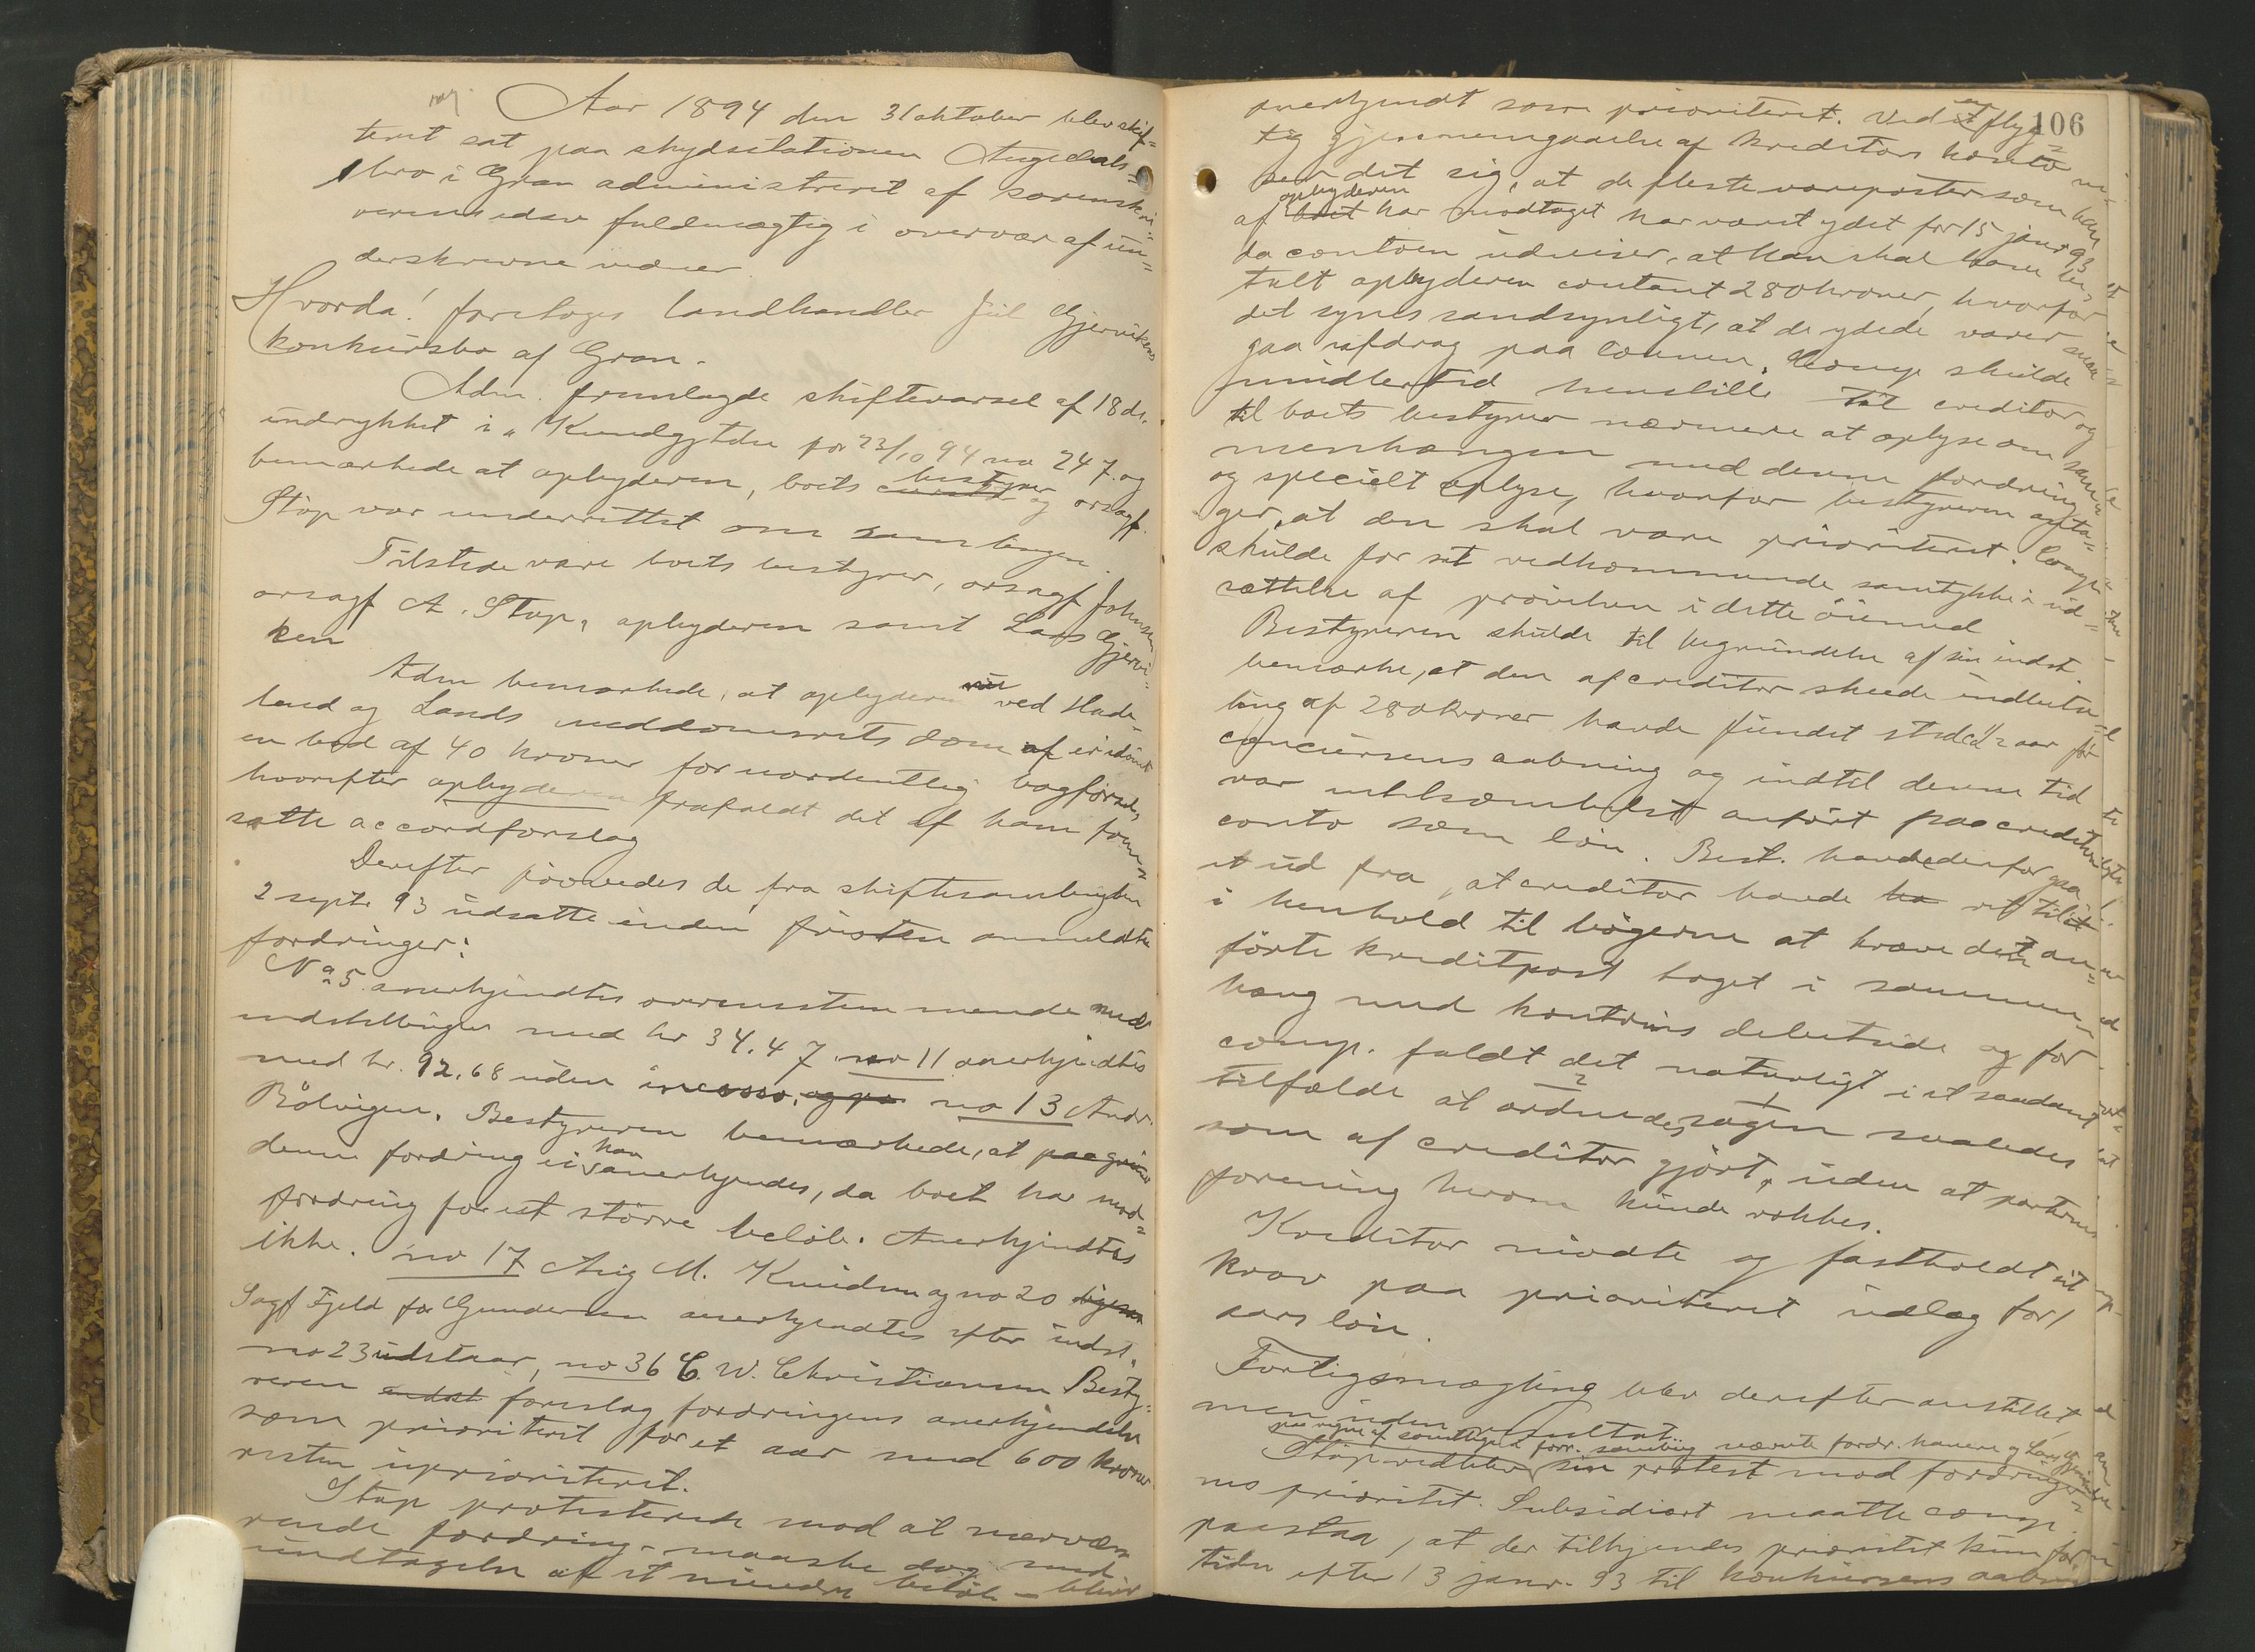 Aar 1894 den 31 oktober blev skif-
teret sat paa skydsstationen Augedals-
bro i Gran administreret af sorenskri-
verens edsv fuldmægtig i overvær af un-
derskrevne vidner.
Hvorda! foretoges landhandler Jul Gjervikens
konkursbo af Gran.
Adm. fremlagde skiftevarsel af 18 ds.
indrykket i "Kundgjtdn for 23/10 94 no 247. og
bemærkede at opbyderen, boets bestyrer og orsagf.
Stop var underrettet om samlingen.
Tilstede vare boets bestyrer, orsagf Johnsen
orsagf A. Stop, opbyderen samt Lars Gjervi-
ken
Adm bemærkede, at opbyderen nu ved Hade-
land og Lands meddomsrets dom af er idømt
en bod af 40 kroner for uordentlig bogførsel,
hvorefter opbyderen frafaldt det af ham frem-
satte accordforslag
Derefter prøvedes de fra skiftesamlingen
2 septr 93 udsatte inden fristen anmeldte
fordringer:
No 5 anerkjendtes overensstemmende med
indstillingen med kr 34.47. no 11 anerkjendtes
med kr. 92.68 uden incasso, og pa no 13 Andr.
Rølvigen. Bestyreren bemærkede, at paa grund
denne fordring ei kan anerkjendes, da boet har mod-
fordring for et større beløb. Anerkjendtes
ikke. no 17 Aug M. Knudsen og no 20 ligesaa
Sagf Fjeld for Gundersen anerkjendtes efter indst.
no 23 udstaar, no 36 C. W. Christiansen Besty-
reren indst foreslog fordringens anerkjendelse
som prioriteret for et aar med 600 kroner
resten uprioriteret.
Stop protesterede mod at nærvæ-
rende fordring - maaske dog med
undtagelse af et mindre beløb - bliver
106
anerkjendt som prioriteret. Ved et flyg-
tig gjennemgaaelse af kreditors konto vi-
ser det sig, at de fleste vareposter som han
af opbyderen boet har modtaget har været ydet før 15 janr 93
da contoen udviser, at han skal have be-
talt opbyderen contant 280 kroner, hvorfor
det synes sandsynligt, at de ydede varer maa
gaa i afdrag paa lønnen. Comp. skulde
imidlertid henstille til creditor og
til boets bestyrer nærmere at oplyse om sam-
menhængen med denne fordring
og specielt oplyse, hvorfor bestyreren anta-
ger, at den skal være prioriteret. Comp.
skulde for sit vedkommende samtykke i ud-
sættelse af prøvelsen i dette øiemed.
Bestyreren skulde til begrundelse af sin indst.
bemærke, at den af creditor skeede indbeta-
ling af 280 kroner havde fundet sted 1/2 aar før
concursens aabning og indtil denne tid
var intetsomhelst anført paa creditors
conto som løn. Best. havde derfor gaa
et ud fra, at creditor havde ha ret til
i henhold til bøgerne at kræve den an-
førte kreditpost taget i sammen-
hæng med kontoens debetside og for
comp. faldt det naturligt i et saadant
tilfælde at ordnedes sagen saaledes
som af creditor gjort, uden at parternes
forening herom kunde rokkes.
Kreditor mødte og fastholdt sit
krav paa prioriteret udlæg for 1
aars løn.
Forligsmægling blev derefter anstillet
men uden resultat.
paa vegne af samtlige i forr. samling nævnte fordr. havere og Lars Gjerviken
Stop vedblev sin protest mod fordringe-
ns prioritet. Subsidiært maatte comp.
paastaa, at der tilkjendes prioritet kun for
tiden efter 13 janr. 93 til konkursens aabn